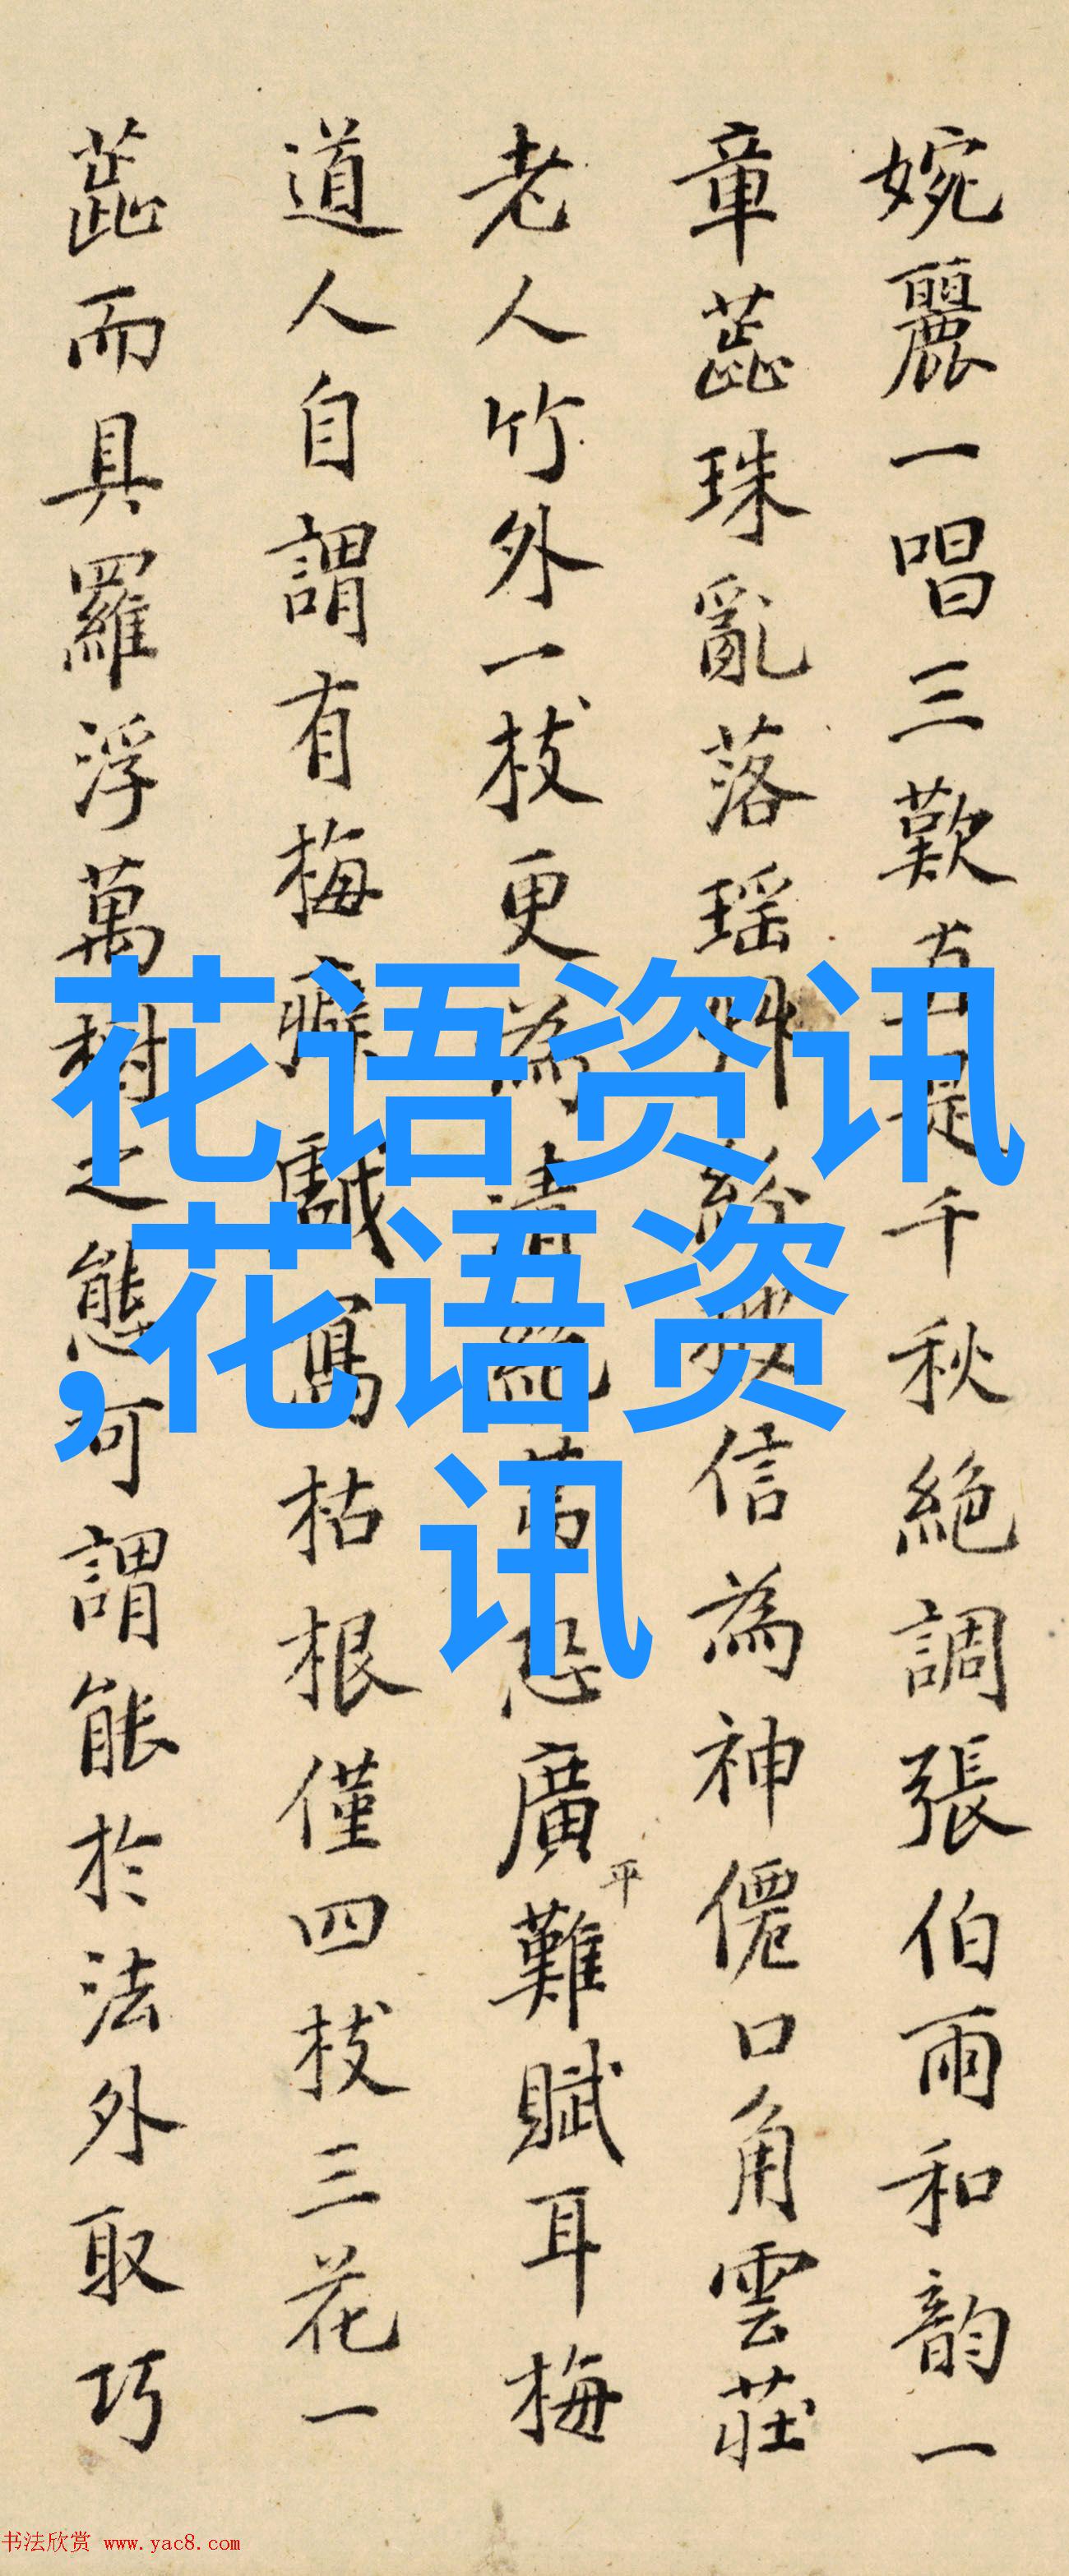 婉麗一唱三歎方是千秋絶調張伯雨和韵一
章蕋珠亂落瑶艸紛披信為神僊口角雲莊
老人竹外一枝更為清絶萬恐廣平難賦耳梅
道人自謂有梅癖戲寫枯根僅四枝三花一
蕋而具羅浮萬樹之態可謂能於法外取巧
花语资讯
,花语资
讯
书法欣赏 www.yac8.com